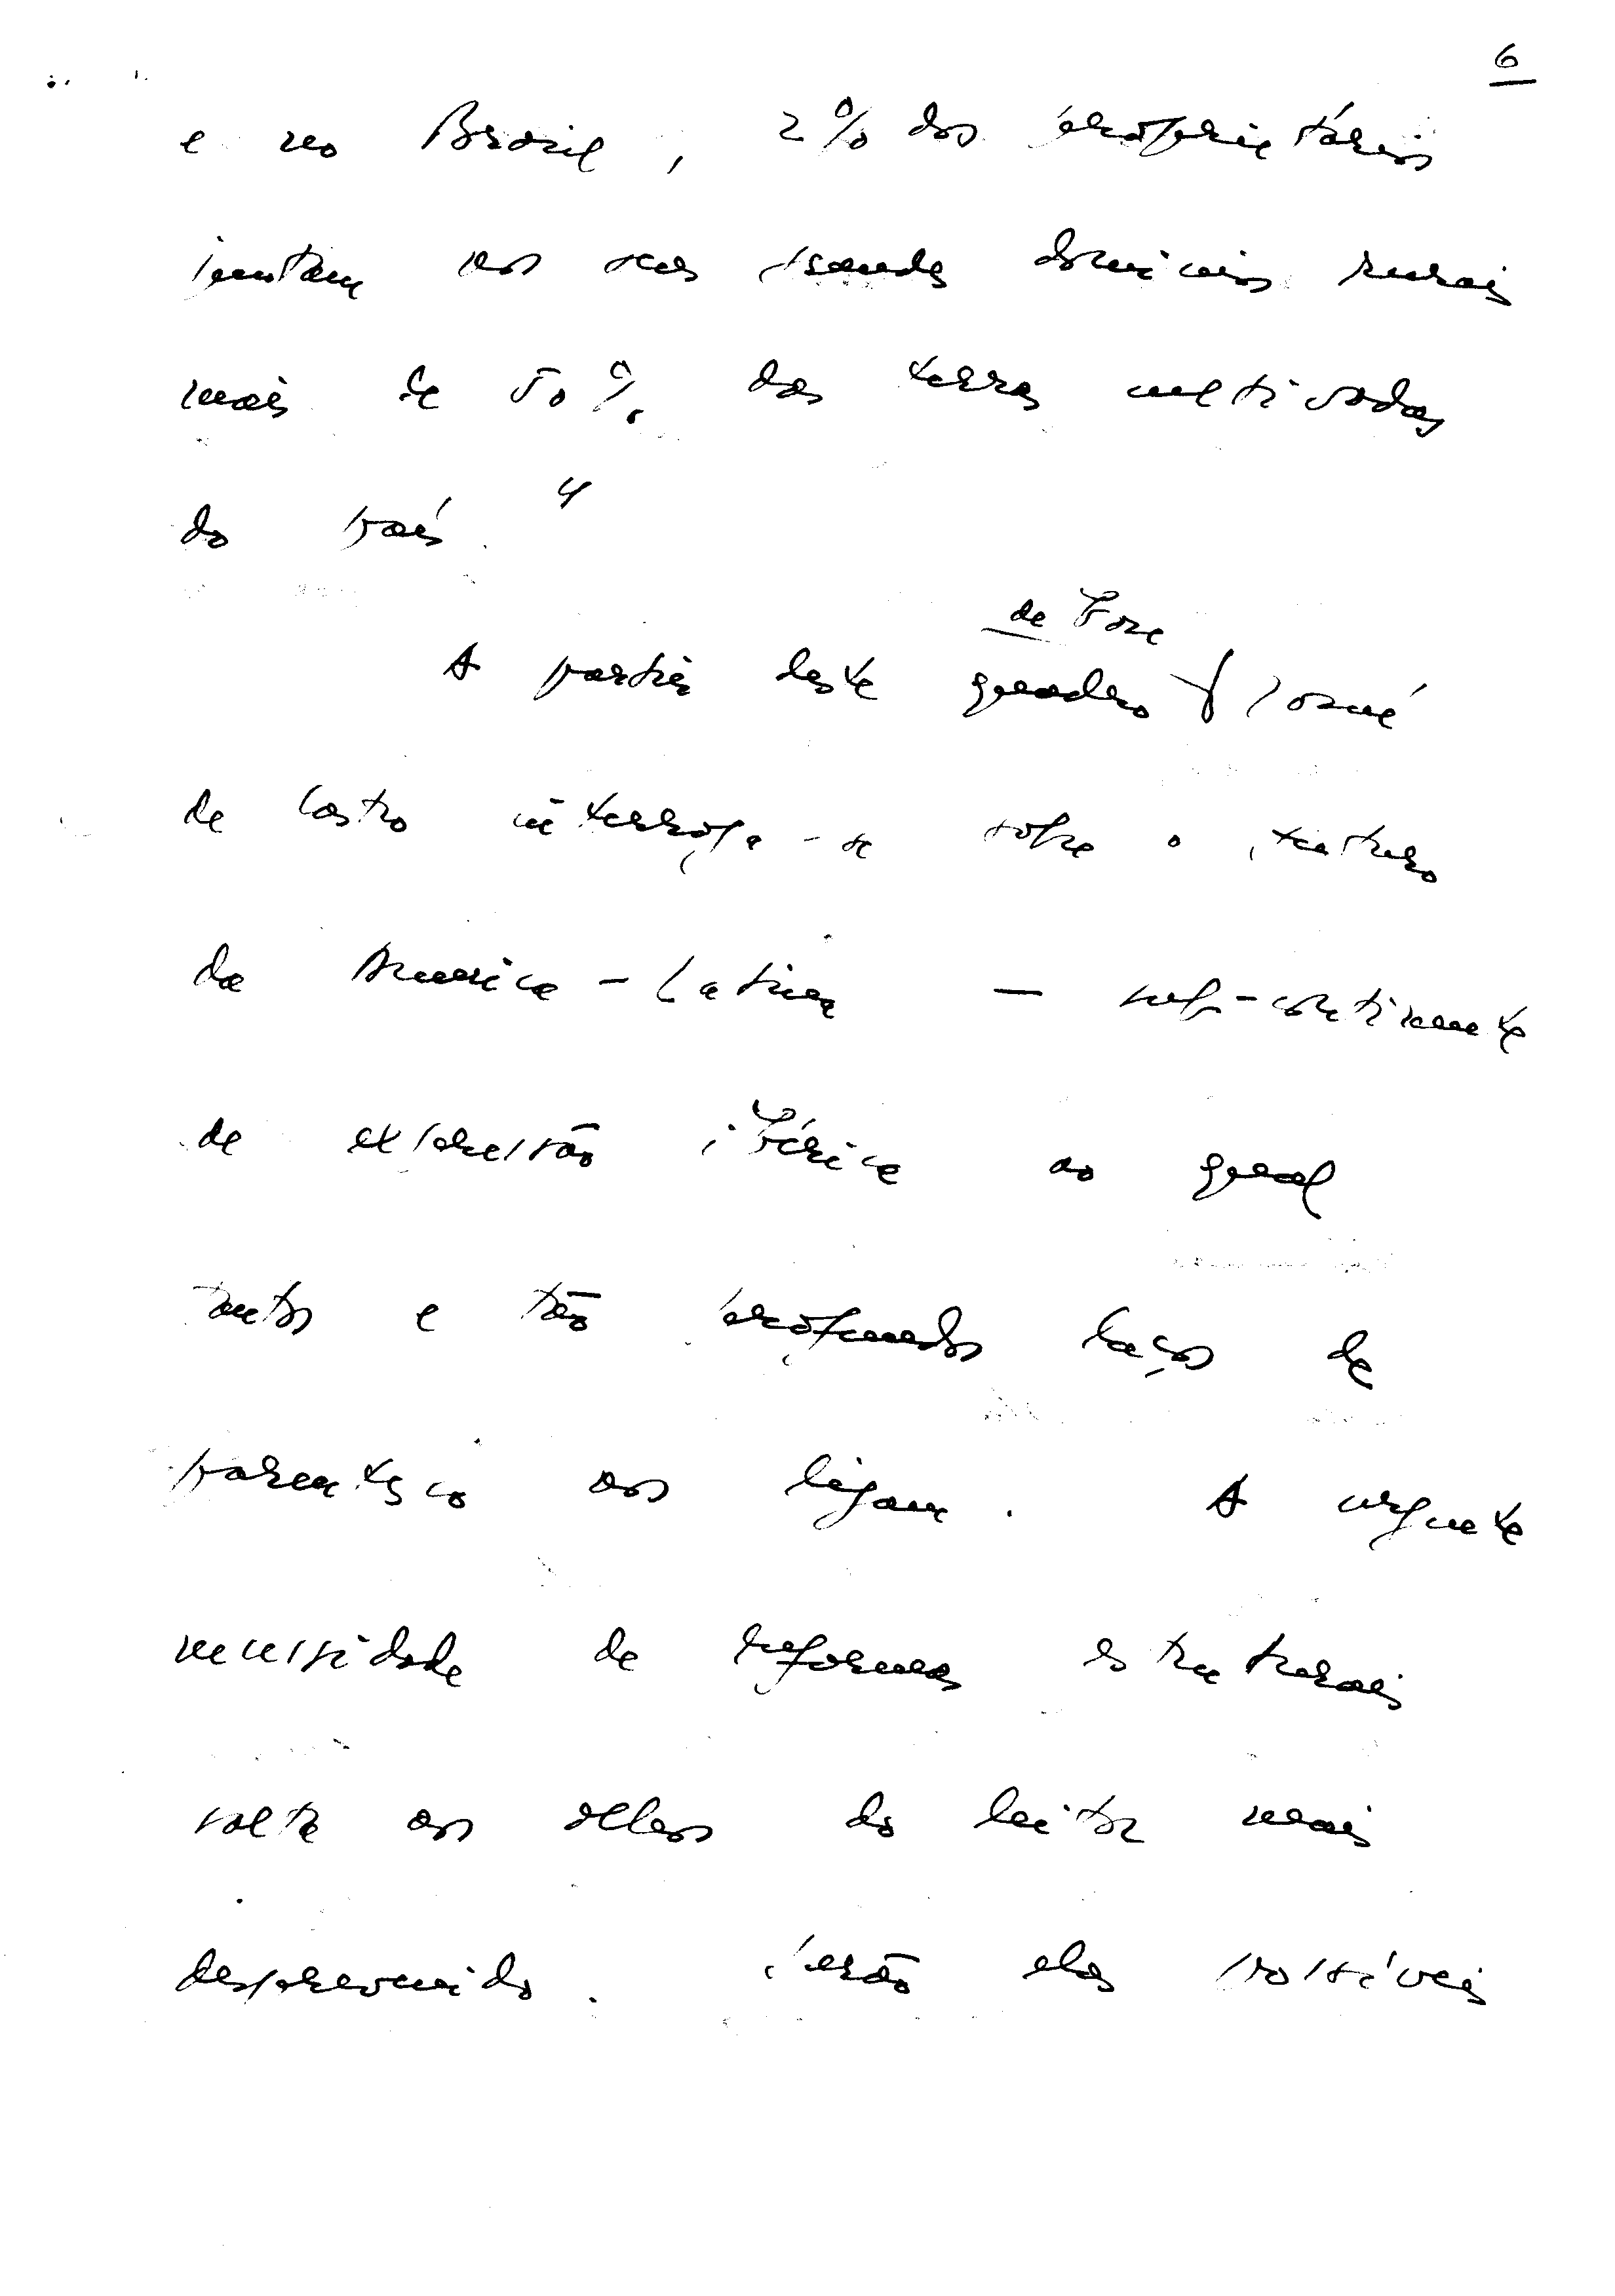 6
e no Brasil, 2% dos proprietários
juntam nos seus grandes domínios rurais
mais de 50% das terras cultivadas
do país. 4
de base
A partir deste quadro Josué
de Castro interroga-se sobre o futuro
da America-Latina — sub-continente
de expressão ibérica ao qual
tantos e tão profundos laços de
parentesco nos ligam. A urgente
necessidade de reformas estruturais
salta aos olhos do leitor mais
desprevenido. Serão elas possíveis